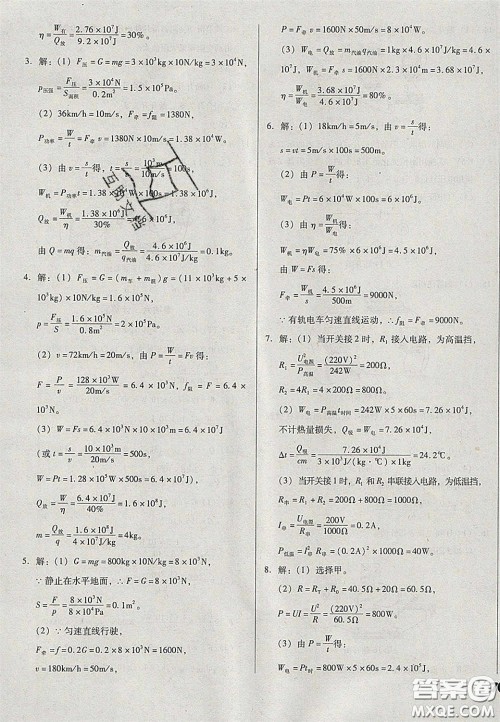 η=W有/Q放=2.76×10⁷J/9.2×10⁷J=30%。
3. 解:(1)F压=G=mg=3×10³kg×10N/kg=3×10⁴N,
p压强=F压/S面积=3×10⁴N/0.2m²=1.5×10⁵Pa。
(2)36km/h=10m/s,F牵=f阻=1380N,
P功率=W/t=F牵v=1380N×10m/s=1.38×10⁴W。
(3)由v=s/t得:t=s/v=10³m/10m/s=100s,
W机=P功率t=1.38×10⁴W×100s=1.38×10⁶J,
Q放=W机/η=1.38×10⁶J/30%=4.6×10⁶J,
由Q=mq得:m汽油=Q放/q汽油=4.6×10⁶J/4.6×10⁷J/kg=0.1kg。
4. 解:(1)F压=G=(m车+m载)g=(11×10³kg+5×
10³kg)×10N/kg=1.6×10⁵N,
p=F压/S=1.6×10⁵N/0.8m²=2×10⁵Pa。
(2)v=72km/h=20m/s,由P=W/t=Fv得:
F=P/v=128×10³W/20m/s=6.4×10³N,f阻=F=6.4×10³N。
(3)W=Fs=6.4×10³N×10×10³m=6.4×10⁷J
(或t=s/v=10×10³m/20m/s=500s,
W=Pt=128×10³W×500s=6.4×10⁷J)
Q放=W/η=6.4×10⁷J/40%=1.6×10⁸J,
m=Q放/q=1.6×10⁸J/4×10⁷J/kg=4kg。
5. 解:(1)G=mg=800kg×10N/kg=8×10³N,
∵静止在水平地面,∴F=G=8×10³N,
S=F/p=8×10³N/8×10⁴Pa=0.1m²。
(2)∵匀速直线行驶,
∴F=f=0.2G=0.2×8×10³N=1.6×10³N,
v=180km/h=50m/s,
P=F牵v=1600N×50m/s=8×10⁴W。
(3)Q放=m汽油q汽油=1kg×4.6×10⁷J/kg=4.6×10⁷J,
W机=F牵s=1600N×2.3×10⁴m=3.68×10⁷J,
η=W机/Q放=3.68×10⁷J/4.6×10⁷J=80%。
6. 解:(1)18km/h=5m/s,由v=s/t得:
s=vt=5m/s×100s=500m。
(2)由P=W/t得:
W电=Pt=6×10⁴W×100s=6×10⁶J。
(3)由η=W机/W电得:
W机=ηW电=75%×6×10⁶J=4.5×10⁶J,
由W=Fs得:
F牵=W机/s=4.5×10⁶J/500m=9000N,
∵有轨电车匀速直线运动,∴f阻=F牵=9000N。
7. 解:(1)当开关接2时,R₁接入电路,为高温挡,
R₁=U²电源/P高温=(220V)²/242W=200Ω,
R₂=4R₁=4×200Ω=800Ω。
(2)W电=P高温t时间=242W×5×60s=7.26×10⁴J,
不计热量损失,Q吸=W电=7.26×10⁴J,
Δt=Q吸/cm=7.26×10⁴J/3×10³J/(kg·℃)×1kg=24.2℃。
(3)当开关接1时,R₁和R₂串联接入电路,为低温挡。
R串=R₁+R₂=200Ω+800Ω=1000Ω,
I串=U/R串=200V/1000Ω=0.2A,
P低温=I²串R串=(0.2A)²×1000Ω=40W。
8. 解:(1)选择甲。
(2)R=R_T+R₀=40.5Ω+20Ω=60.5Ω,
P=UI=U²/R=(220V)²/60.5Ω=800W。
(3)由P=W/t得:
W电=Pt时=800W×5×60s=2.4×10⁵J,
互助文档
答案圈
MXQE.COM